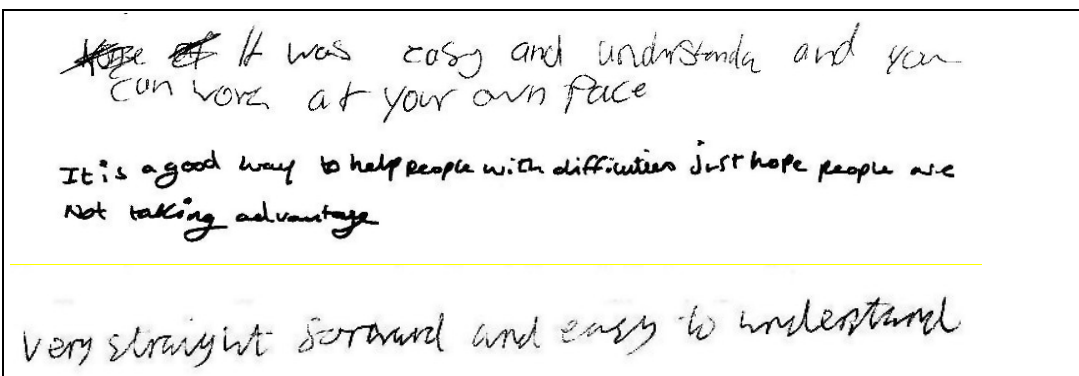 It was easy and understanda and you
can work at your own pace
It is a good way to help people with difficulties just hope people are
Not taking advantage
Very straight forward and easy to understand